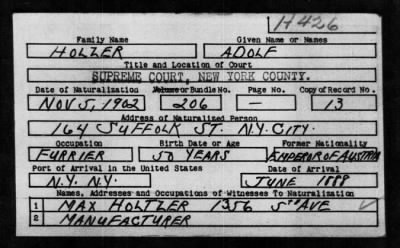 H426
Family Name Given Name or Names
HOLZER ADOLF
Title and Location of Court
SUPREME COURT, NEW YORK COUNTY.
Date of Naturalization Volume or Bundle No. Page No. Copy of Record No.
NOV 5, 1902 206 — 13
Address of Naturalized Person
164 SUFFOLK ST. N.Y. CITY.
Occupation Birth Date or Age Former Nationality
FURRIER 50 YEARS EMPEROR OF AUSTRIA
Port of Arrival in the United States Date of Arrival
N.Y. N.Y. JUNE 1888
Names, Addresses and Occupations of Witnesses To Naturalization
1 MAX HOLTZER 1356 5TH AVE
2 MANUFACTURER